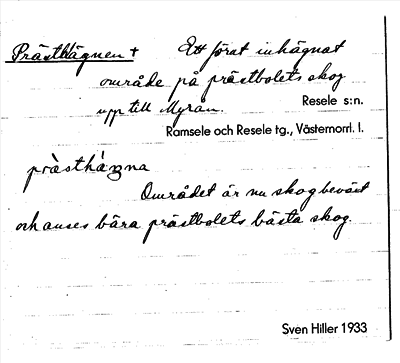 Prästhägnen + Ett förut inhägnat
område på prästbolets skog
upp till Myrån. Resele s:n.
Ramsele och Resele tg., Västernorrl. l.
prästhäŋna
Området är nu skogbeväxt
och anses bära prästbolets bästa skog.
Sven Hiller 1933